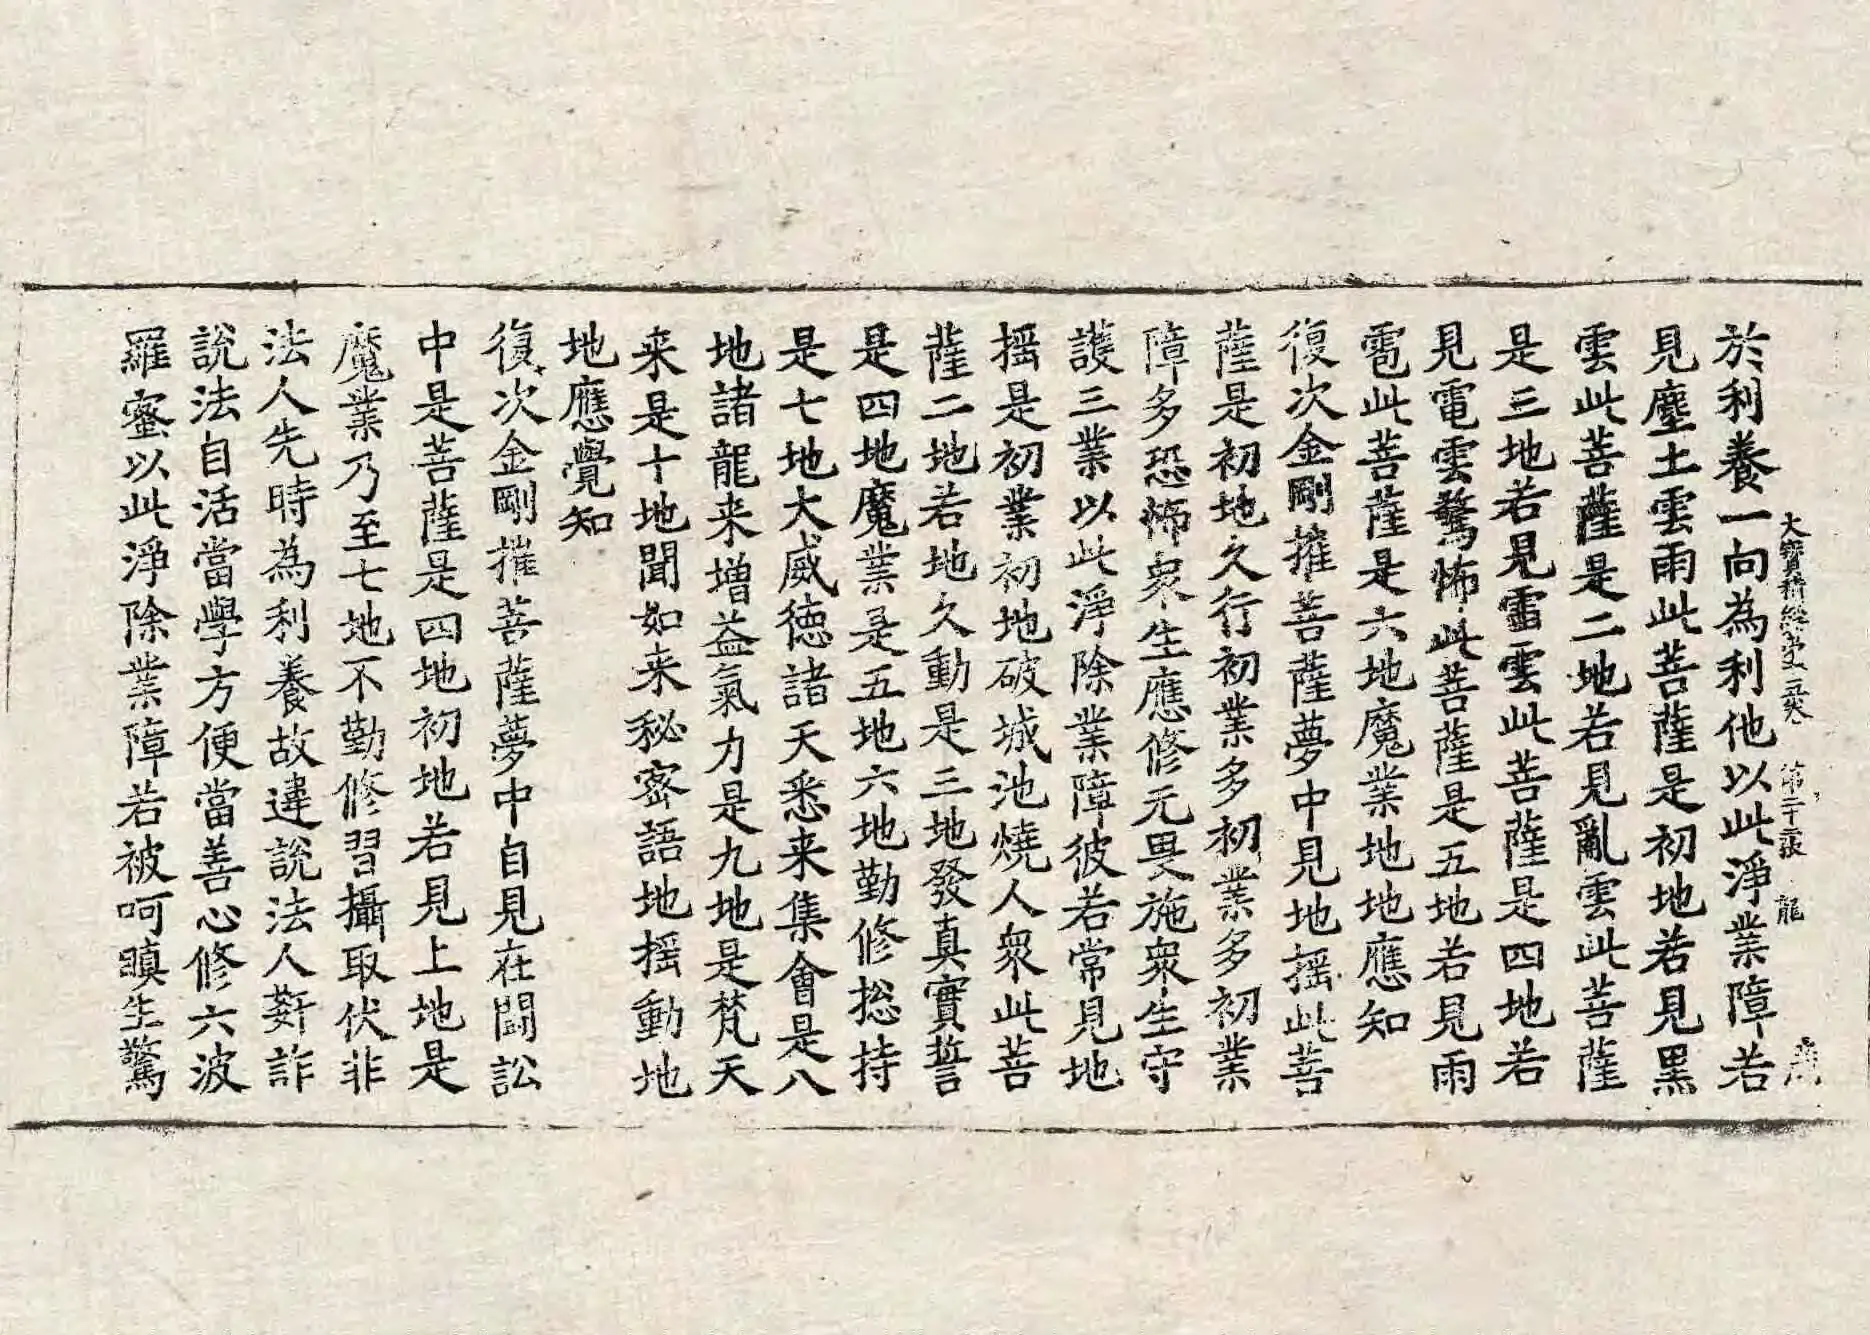 於利養一向為利他以此淨業障若
大寶積經第十五卷 第二十張 龍
見塵土雲雨此菩薩是初地若見黑
雲此菩薩是二地若見亂雲此菩薩
是三地若見雷雲此菩薩是四地若
見電雲驚怖此菩薩是五地若見雨
雹此菩薩是六地魔業地地應知
復次金剛摧菩薩夢中見地揺此菩
薩是初地久行初業多初業多初業
障多恐怖衆生應修无畏施衆生守
護三業以此淨除業障彼若常見地
揺是初業初地破城池燒人衆此菩
薩二地若地久動是三地發真實誓
是四地魔業是五地六地勤修捴持
是七地大威徳諸天悉来集會是八
地諸龍来增益氣力是九地是梵天
来是十地聞如来秘密語地揺動地
地應覺知
復次金剛摧菩薩夢中自見在闘訟
中是菩薩是四地初地若見上地是
魔業乃至七地不勤修習攝取伏非
法人先時為利養故違說法人姧詐
說法自活當學方便當善心修六波
羅蜜以此淨除業障若被呵瞋生驚